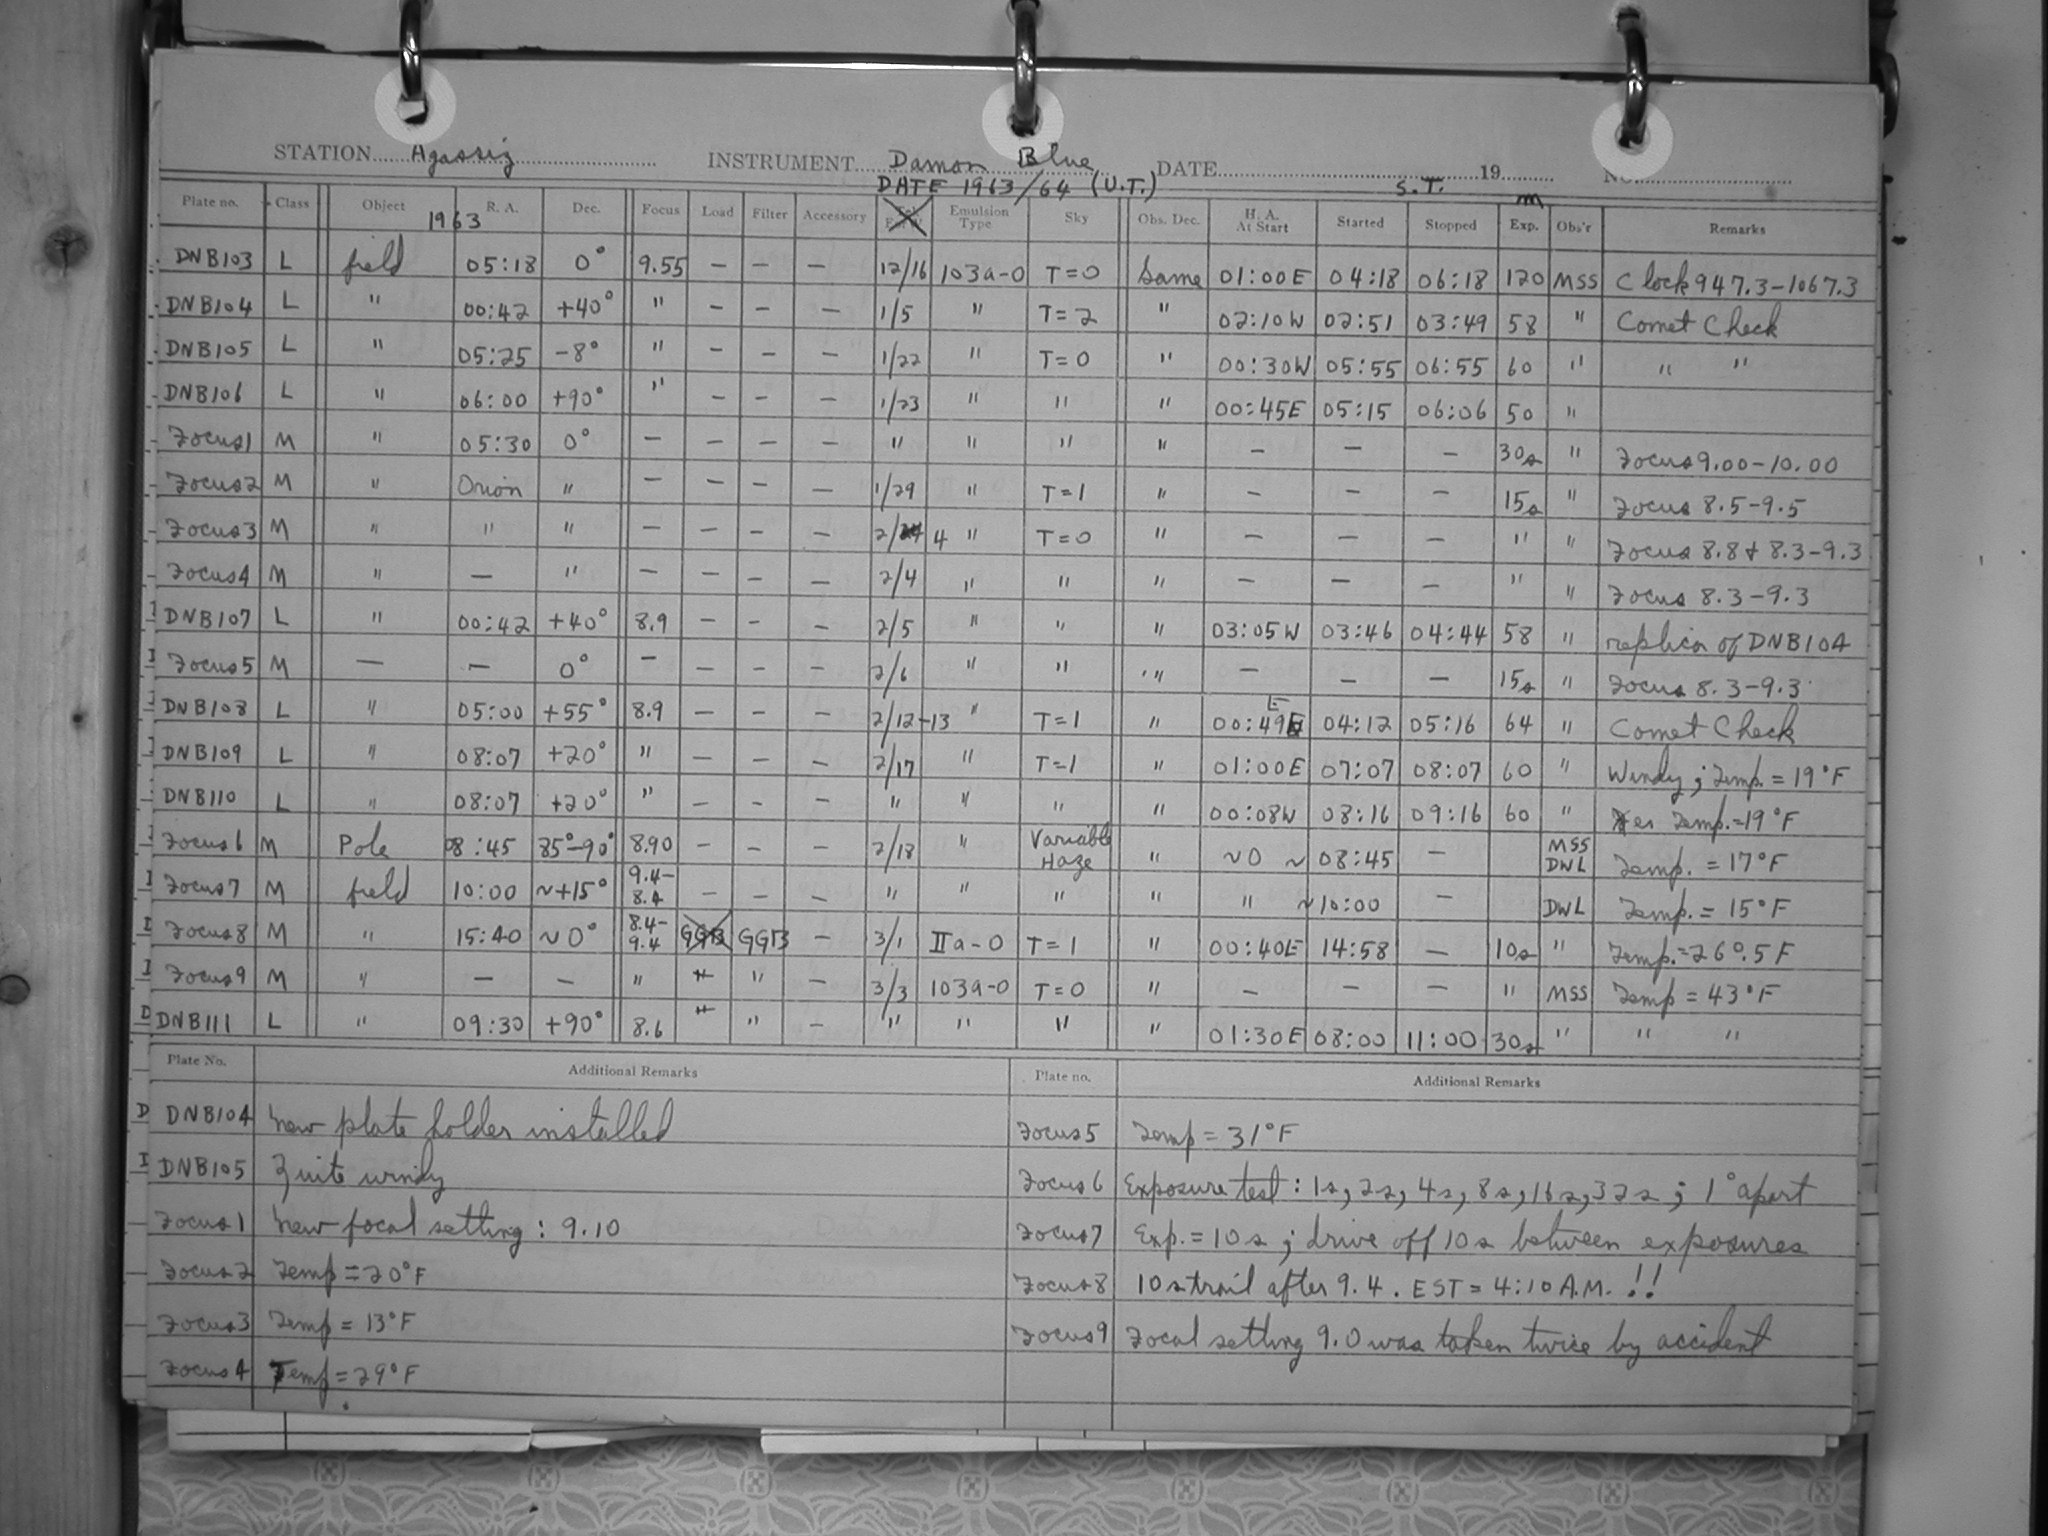 STATION Agassiz INSTRUMENT Damon Blue DATE 19 NO.
DATE 1963/64 (U.T.) S.T.
Plate no. Class Object R. A. Dec. Focus Load Filter Accessory Emulsion Type Sky Obs. Dec. H. A. At Start Started Stopped Exp. Obs'r Remarks
1963 m
DNB103 L field 05:18 0° 9.55 — — — 12/16 103a-O T=0 Same 01:00E 04:18 06:18 120 MSS Clock 947.3-1067.3
DNB104 L " 00:42 +40° " — — — 1/5 " T=2 " 02:10W 02:51 03:49 58 " Comet Check
DNB105 L " 05:25 -8° " — — — 1/22 " T=0 " 00:30W 05:55 06:55 60 " " "
DNB106 L " 06:00 +90° " — — — 1/23 " " " 00:45E 05:15 06:06 50 "
Focus1 M " 05:30 0° — — — — " " " " — — — 30s " Focus 9.00-10.00
Focus2 M " Orion " — — — — 1/29 " T=1 " — — — 15s " Focus 8.5-9.5
Focus3 M " " " — — — — 2/4 " T=0 " — — — " " Focus 8.8 & 8.3-9.3
Focus4 M " — " — — — — 2/4 " " " — — — " " Focus 8.3-9.3
DNB107 L " 00:42 +40° 8.9 — — — 2/5 " " " 03:05W 03:46 04:44 58 " replica of DNB104
Focus5 M — — 0° — — — — 2/6 " " " — — — 15s " Focus 8.3-9.3
DNB108 L " 05:00 +55° 8.9 — — — 2/12-13 " T=1 " 00:49E 04:12 05:16 64 " Comet Check
DNB109 L " 08:07 +20° " — — — 2/17 " T=1 " 01:00E 07:07 08:07 60 " Windy; Temp. = 19°F
DNB110 L " 08:07 +20° " — — — " " " " 00:08W 08:16 09:16 60 " Temp.=19°F
Focus6 M Pole 08:45 85°-90° 8.90 — — — 2/18 " Variable Haze " ~0 ~08:45 — MSS DWL Temp. = 17°F
Focus7 M field 10:00 ~+15° 9.4-8.4 — — — " " " " " ~10:00 — DWL Temp. = 15°F
Focus8 M " 15:40 ~0° 8.4-9.4 GG13 GG13 — 3/1 IIa-O T=1 " 00:40E 14:58 — 10s " Temp.=26°.5F
Focus9 M " — — " " " — 3/3 103a-O T=0 " — — — " MSS Temp = 43°F
DNB111 L " 09:30 +90° 8.6 " " — " " " " 01:30E 08:00 11:00 30s " " "
Plate No. Additional Remarks Plate no. Additional Remarks
DNB104 New plate holder installed
Focus5 Temp = 31°F
DNB105 Quite windy
Focus6 Exposure test: 1s, 2s, 4s, 8s, 16s, 32s; 1° apart
Focus1 New focal setting: 9.10
Focus7 Exp. = 10s; drive off 10s between exposures
Focus2 Temp = 20°F
Focus8 10s trail after 9.4. EST = 4:10 A.M. !!
Focus3 Temp = 13°F
Focus9 Focal setting 9.0 was taken twice by accident
Focus4 Temp = 29°F